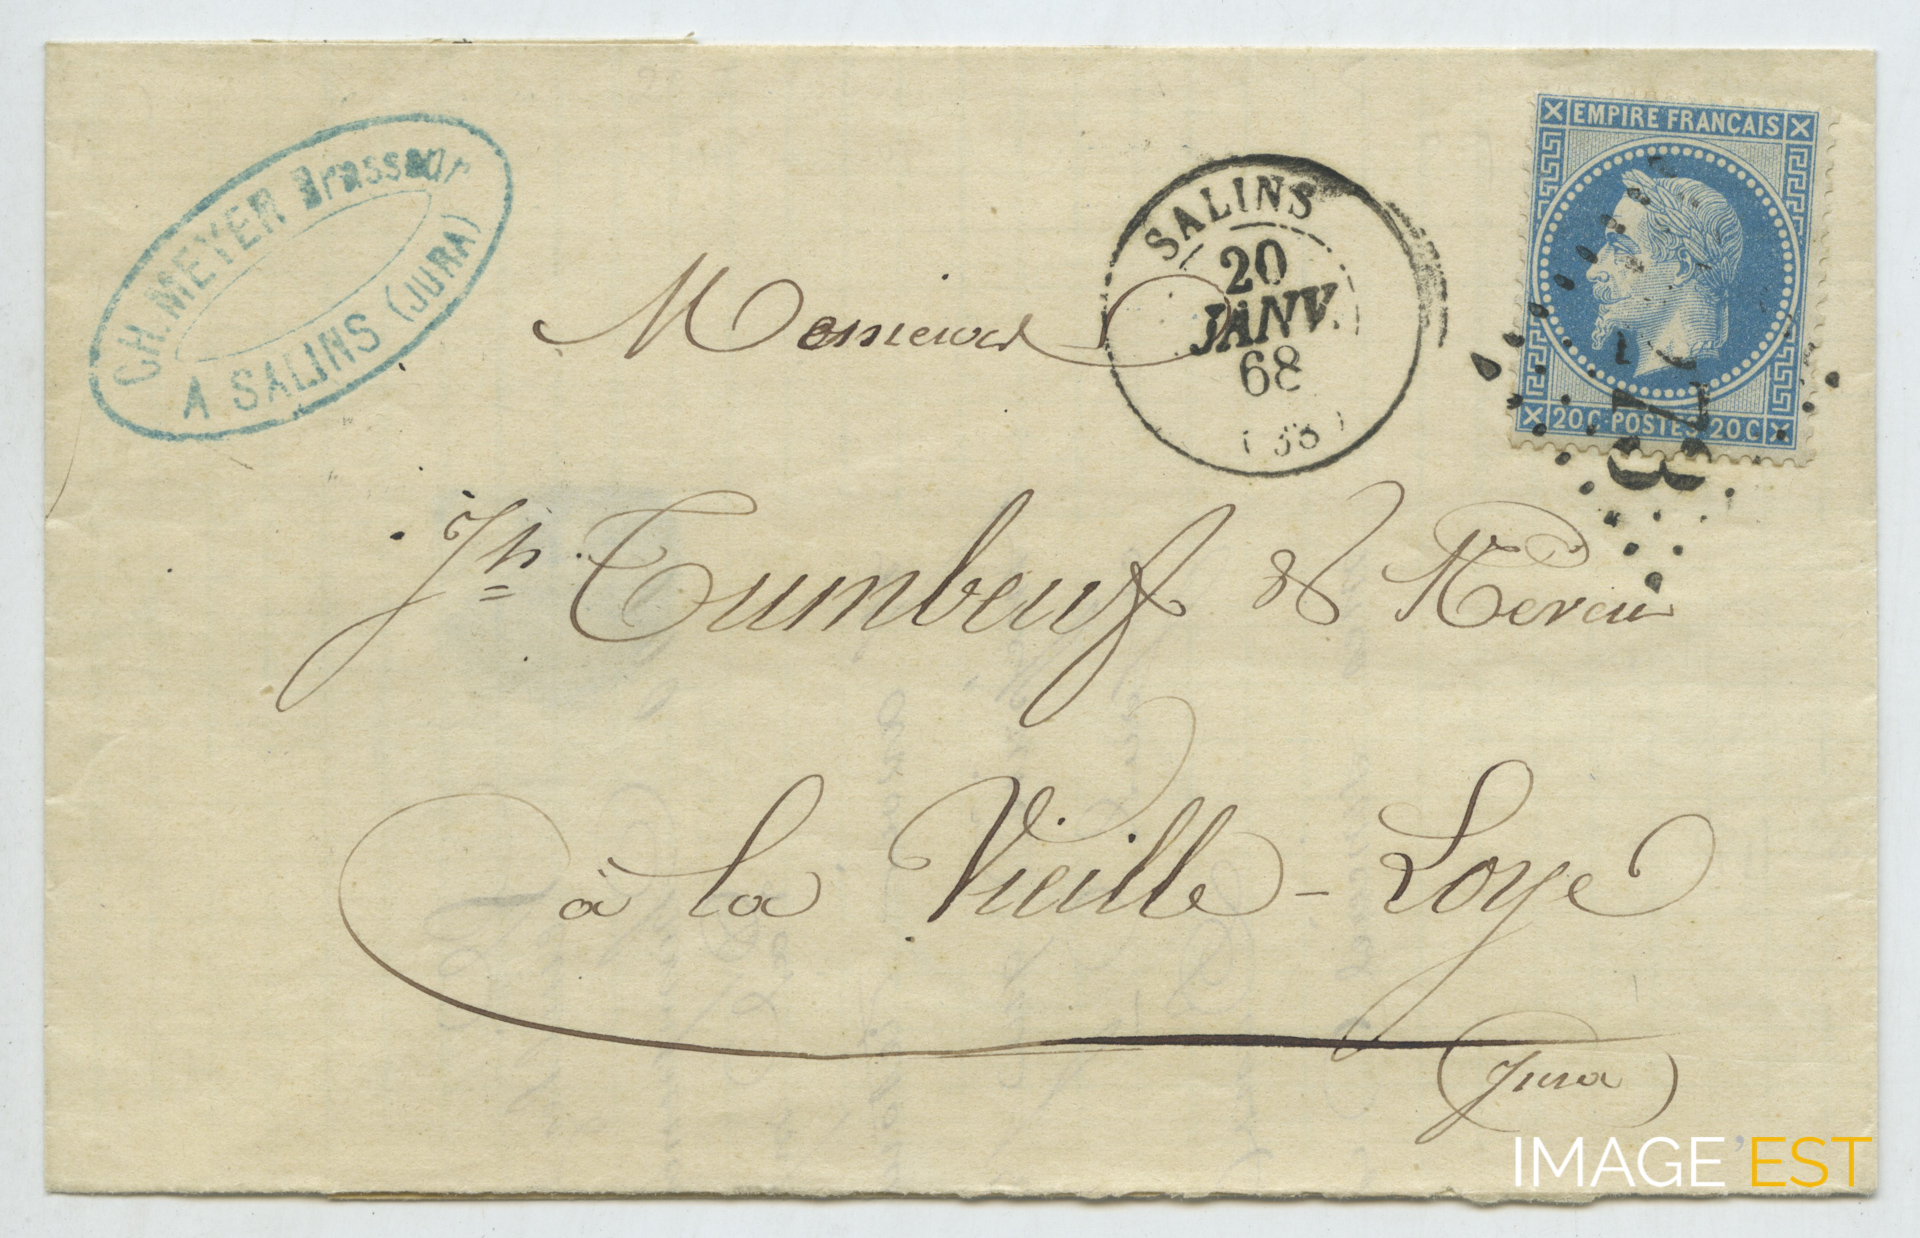 CH. MEYER Brasseur
A SALINS (JURA)
SALINS
20
JANV.
68
(38)
EMPIRE FRANÇAIS
20C·POSTES·20C
Messieurs
Jh Tumbeuf & Neveu
à la Vieille-Loye
(Jura)
IMAGE'EST